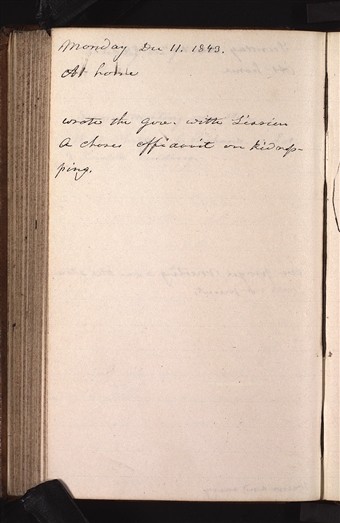 Monday Dec 11. 1843.
At home
wrote the Gov. with Sission
A Chases affidavit on kidnap-
ping.